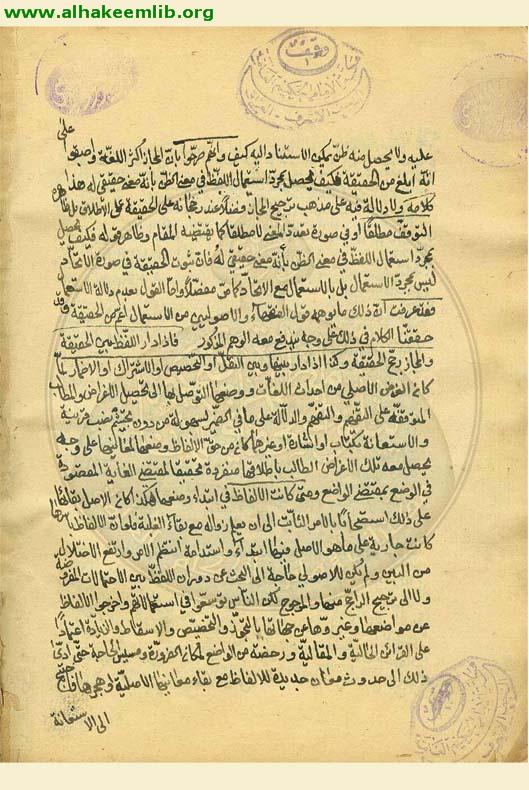 www.alhakeemlib.org
وقف
على
عليه ولا يحصل منه ظن يمكن الاستناد اليه كيف وانهم صرحوا بان المجاز اكثر اللغة واصفوا
انه ابلغ من الحقيقة فكيف يحصل بمجرد استعمال اللفظ في معنى الظن بانه معنى حقيقي له هذا
كلامه ولا دلالة فيه على مذهب ترجيح المجاز فضلا عند رجحانه على الحقيقة على الاطلاق بل ظاهره
التوقف مطلقا او في صورة تعدد المعنى لا مطلقا كما يقتضيه المقام وظاهر قوله فكيف يحصل
بمجرد استعمال اللفظ في معنى الظن بانه معنى حقيقي له فان ثبوت الحقيقة في صورة الاتحاد
ليس بمجرد الاستعمال بل بالاستعمال مع الاتحاد كما مر مفصلا واما القول بعدم دلالة الاستعمال
فقد عرفت ان ذلك ما يوهمه قول الفقهاء والاصوليين من ان الاستعمال اعم من الحقيقة وقد
حققنا الكلام في ذلك على وجه يندفع معه الوهم المذكور فاذا دار اللفظ بين الحقيقة
والمجاز رجح الحقيقة وكذا اذا دار بينها وبين النقل او التخصيص او الاشتراك او الاضمار لما
كان الغرض الاصلي من احداث اللغات ووضعها التوصل بها الى تحصيل الاغراض والمطالب
المتوقفة على التفهيم والتفهم والدلالة على ما في الضمير بسهولة من دون تجشم نصب قرينة
والاستعانة بكتاب او اشارة او غيرها كان من حق الالفاظ وضعها لمعانيها على وجه
يحصل معه تلك الاغراض الطالب باطلاقها منفردة تحقيقا لمقتضى الغاية المقصودة
في الوضع بمقتضى الواضع ومتى كانت الالفاظ في ابتداء وضعها هكذا كان الاصل بقائها
على ذلك استصحابا بالامر الثابت الى ان يعلم زواله مع بقاء الغلبة فلو ان الالفاظ باسرها
كانت جارية على ما هو الاصل فيها ابتداء واستدامة انتظم الامر وارتفع الاختلال
من البين ولم يكن للاصولي حاجة الى البحث عن دوران اللفظ بين الاحتمالات المفروضة
ولا الى ترجيح الراجح منها والمرجوح لكن الناس توسعوا في استعمالاتهم واخرجوا الالفاظ
عن مواضعها وغيروها عن جهاتها بالتجوز والتخصيص والاسقاط والزيادة اعتمادا
على القرائن الحالية والمقالية ورخصة من الواضع لمكان الضرورة ومسيس الحاجة حتى ادى
ذلك الى حدوث معان جديدة للالفاظ مع بقاء معانيها الاصلية وهجرها فاحتيج
الى الاستعانة